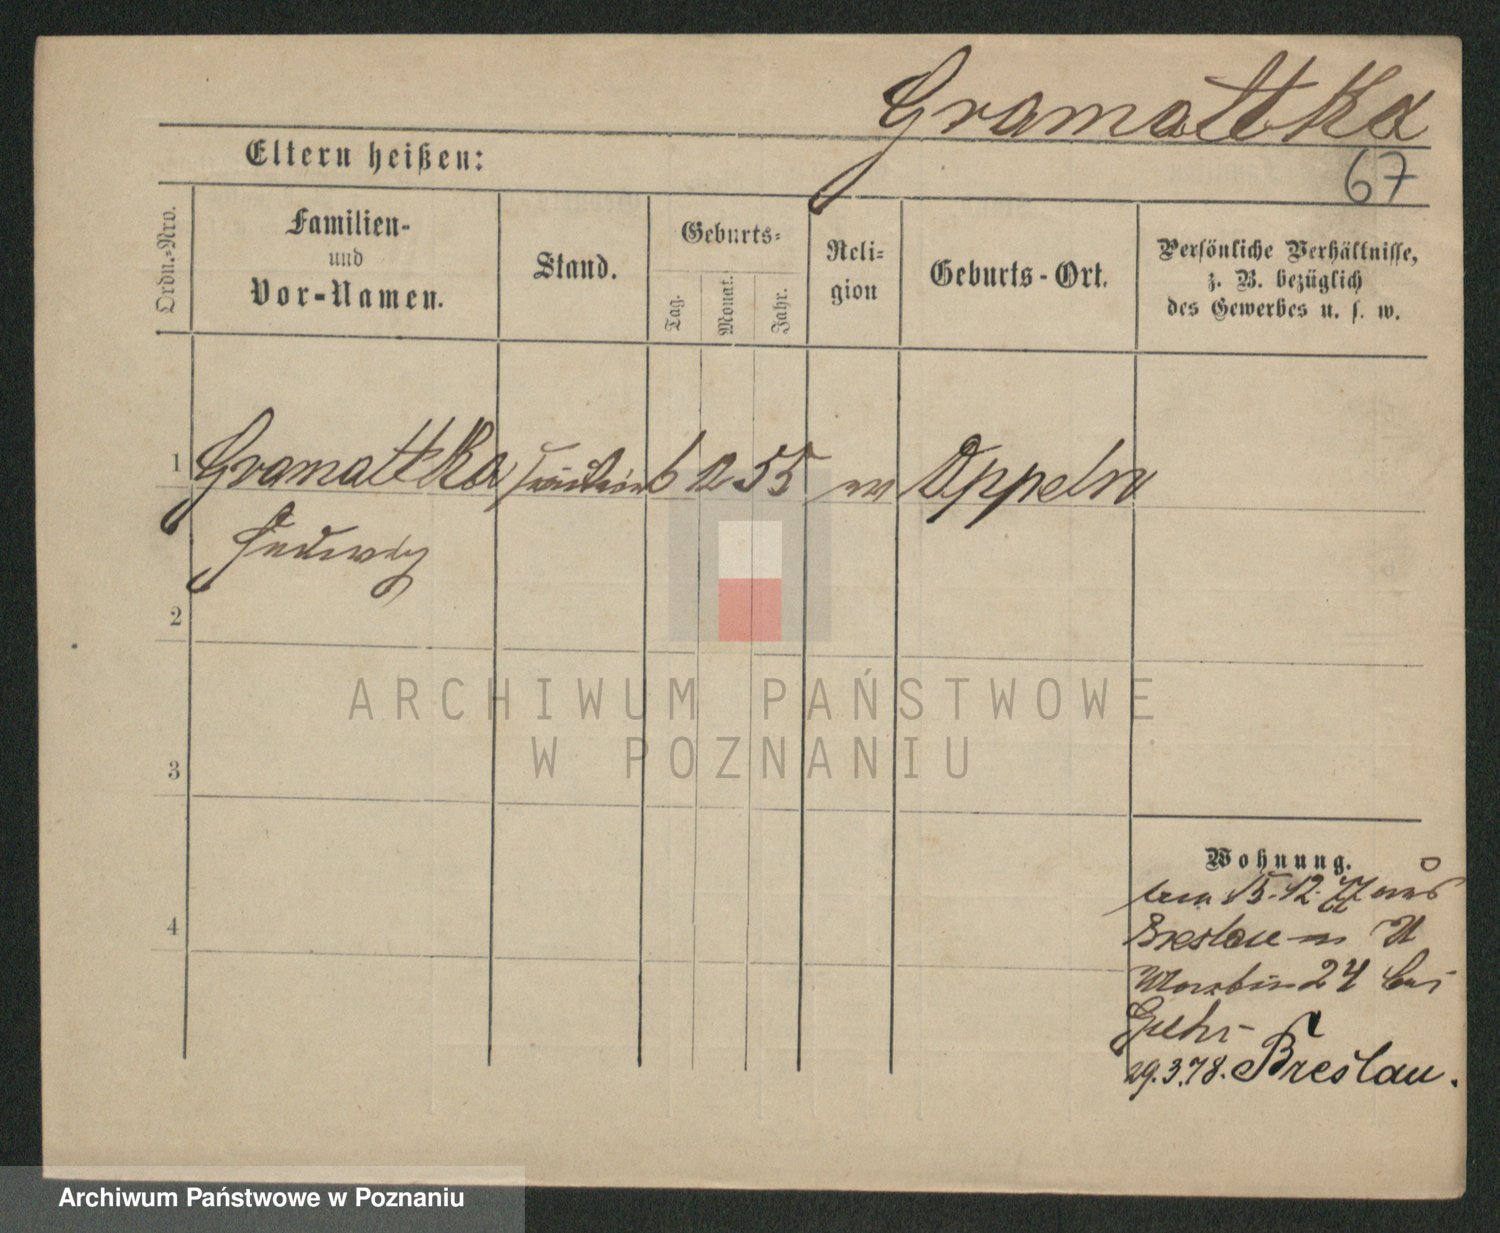 Gramattka
67
Eltern heißen:
Ordn.-Nro.
Familien-
und
Vor-Namen.
Stand.
Geburts-
Tag.
Monat.
Jahr.
Reli-
gion
Geburts-Ort.
Persönliche Verhältnisse,
z. B. bezüglich
des Gewerbes u. s. w.
1 Gramattka 6 12 55 Oppeln
Hedwig
2
3
4
ARCHIWUM PAŃSTWOWE
W POZNANIU
Wohnung.
15.12.77 aus
Breslau n
Martin 24 bei
29.3.78. Breslau.
Archiwum Państwowe w Poznaniu